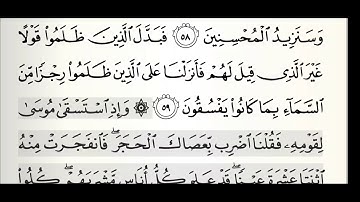 وَسَنَزِيدُ ٱلْمُحْسِنِينَ ٥٨ فَبَدَّلَ ٱلَّذِينَ ظَلَمُوا۟ قَوْلًا
غَيْرَ ٱلَّذِى قِيلَ لَهُمْ فَأَنزَلْنَا عَلَى ٱلَّذِينَ ظَلَمُوا۟ رِجْزًا مِّنَ
ٱلسَّمَآءِ بِمَا كَانُوا۟ يَفْسُقُونَ ٥٩ ۞ وَإِذِ ٱسْتَسْقَىٰ مُوسَىٰ
لِقَوْمِهِۦ فَقُلْنَا ٱضْرِب بِّعَصَاكَ ٱلْحَجَرَ ۖ فَٱنفَجَرَتْ مِنْهُ
ٱثْنَتَا عَشْرَةَ عَيْنًا ۖ قَدْ عَلِمَ كُلُّ أُنَاسٍ مَّشْرَبَهُمْ ۖ كُلُوا۟